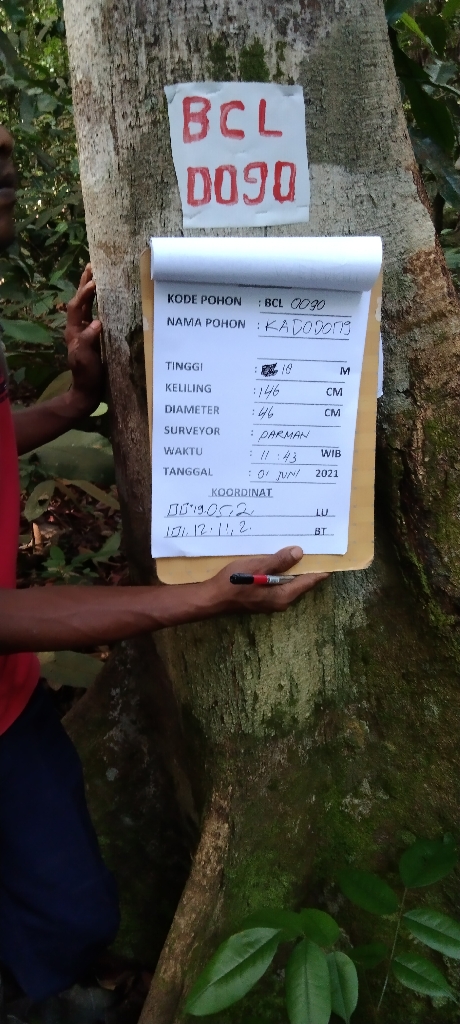 BCL
0090
KODE POHON : BCL 0090
NAMA POHON : KADODONG
TINGGI : 18 M
KELILING : 146 CM
DIAMETER : 46 CM
SURVEYOR : DARMAN
WAKTU : 11 : 43 WIB
TANGGAL : 01 JUNI 2021
KOORDINAT
LU
101.12.11.2. BT